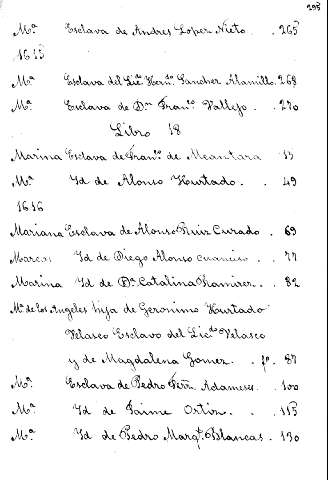 295
Mª Esclava de Andres Lopez Nieto. . 265
1615
Mª Esclava del Licº Hernº Sanchez Alamillo 268
Mª Esclava de Dn Franco Vallejo. . 270
Libro 18
Marina Esclava de Franco de Alcantara 13
Mª Id de Alonso Hurtado. . 49
1616
Mariana Esclava de Alonso Ruiz Curado . 69
Marcos Id de Diego Alonso . 77
Marina Id de Dª Catalina Ramirez. . 82
Mª de los Angeles hija de Geronimo Hurtado
Velasco Esclavo del Licdo Velasco
y de Magdalena Gomez. . fº. 87
Mª Esclava de Pedro Ferrn Adameses. . 100
Mª Id de Jaime Ortin. . . 115
Mª Id de Pedro Marqz Blancas. . 130